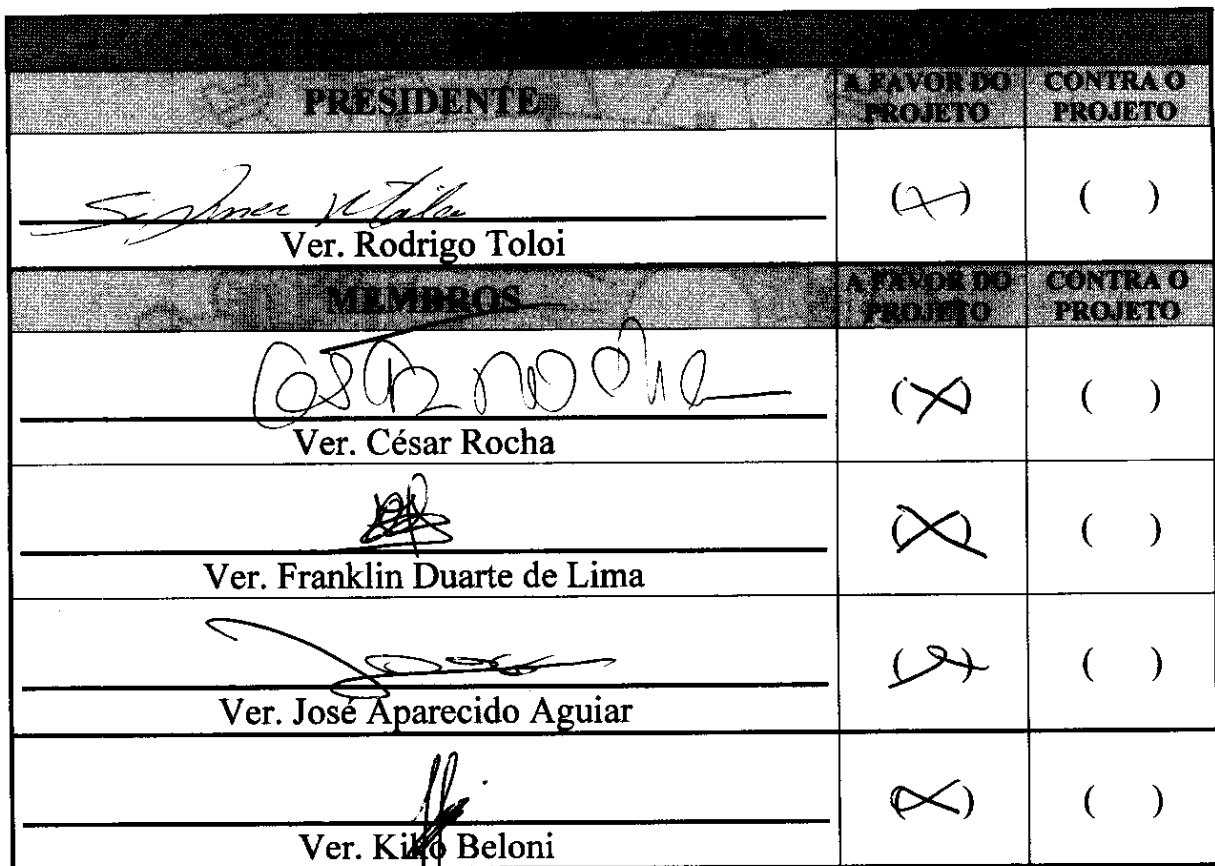 PRESIDENTE A FAVOR DO PROJETO CONTRA O PROJETO
(X) ( )
Ver. Rodrigo Toloi
MEMBROS A FAVOR DO PROJETO CONTRA O PROJETO
(X) ( )
Ver. César Rocha
(X) ( )
Ver. Franklin Duarte de Lima
(X) ( )
Ver. José Aparecido Aguiar
(X) ( )
Ver. Kiko Beloni